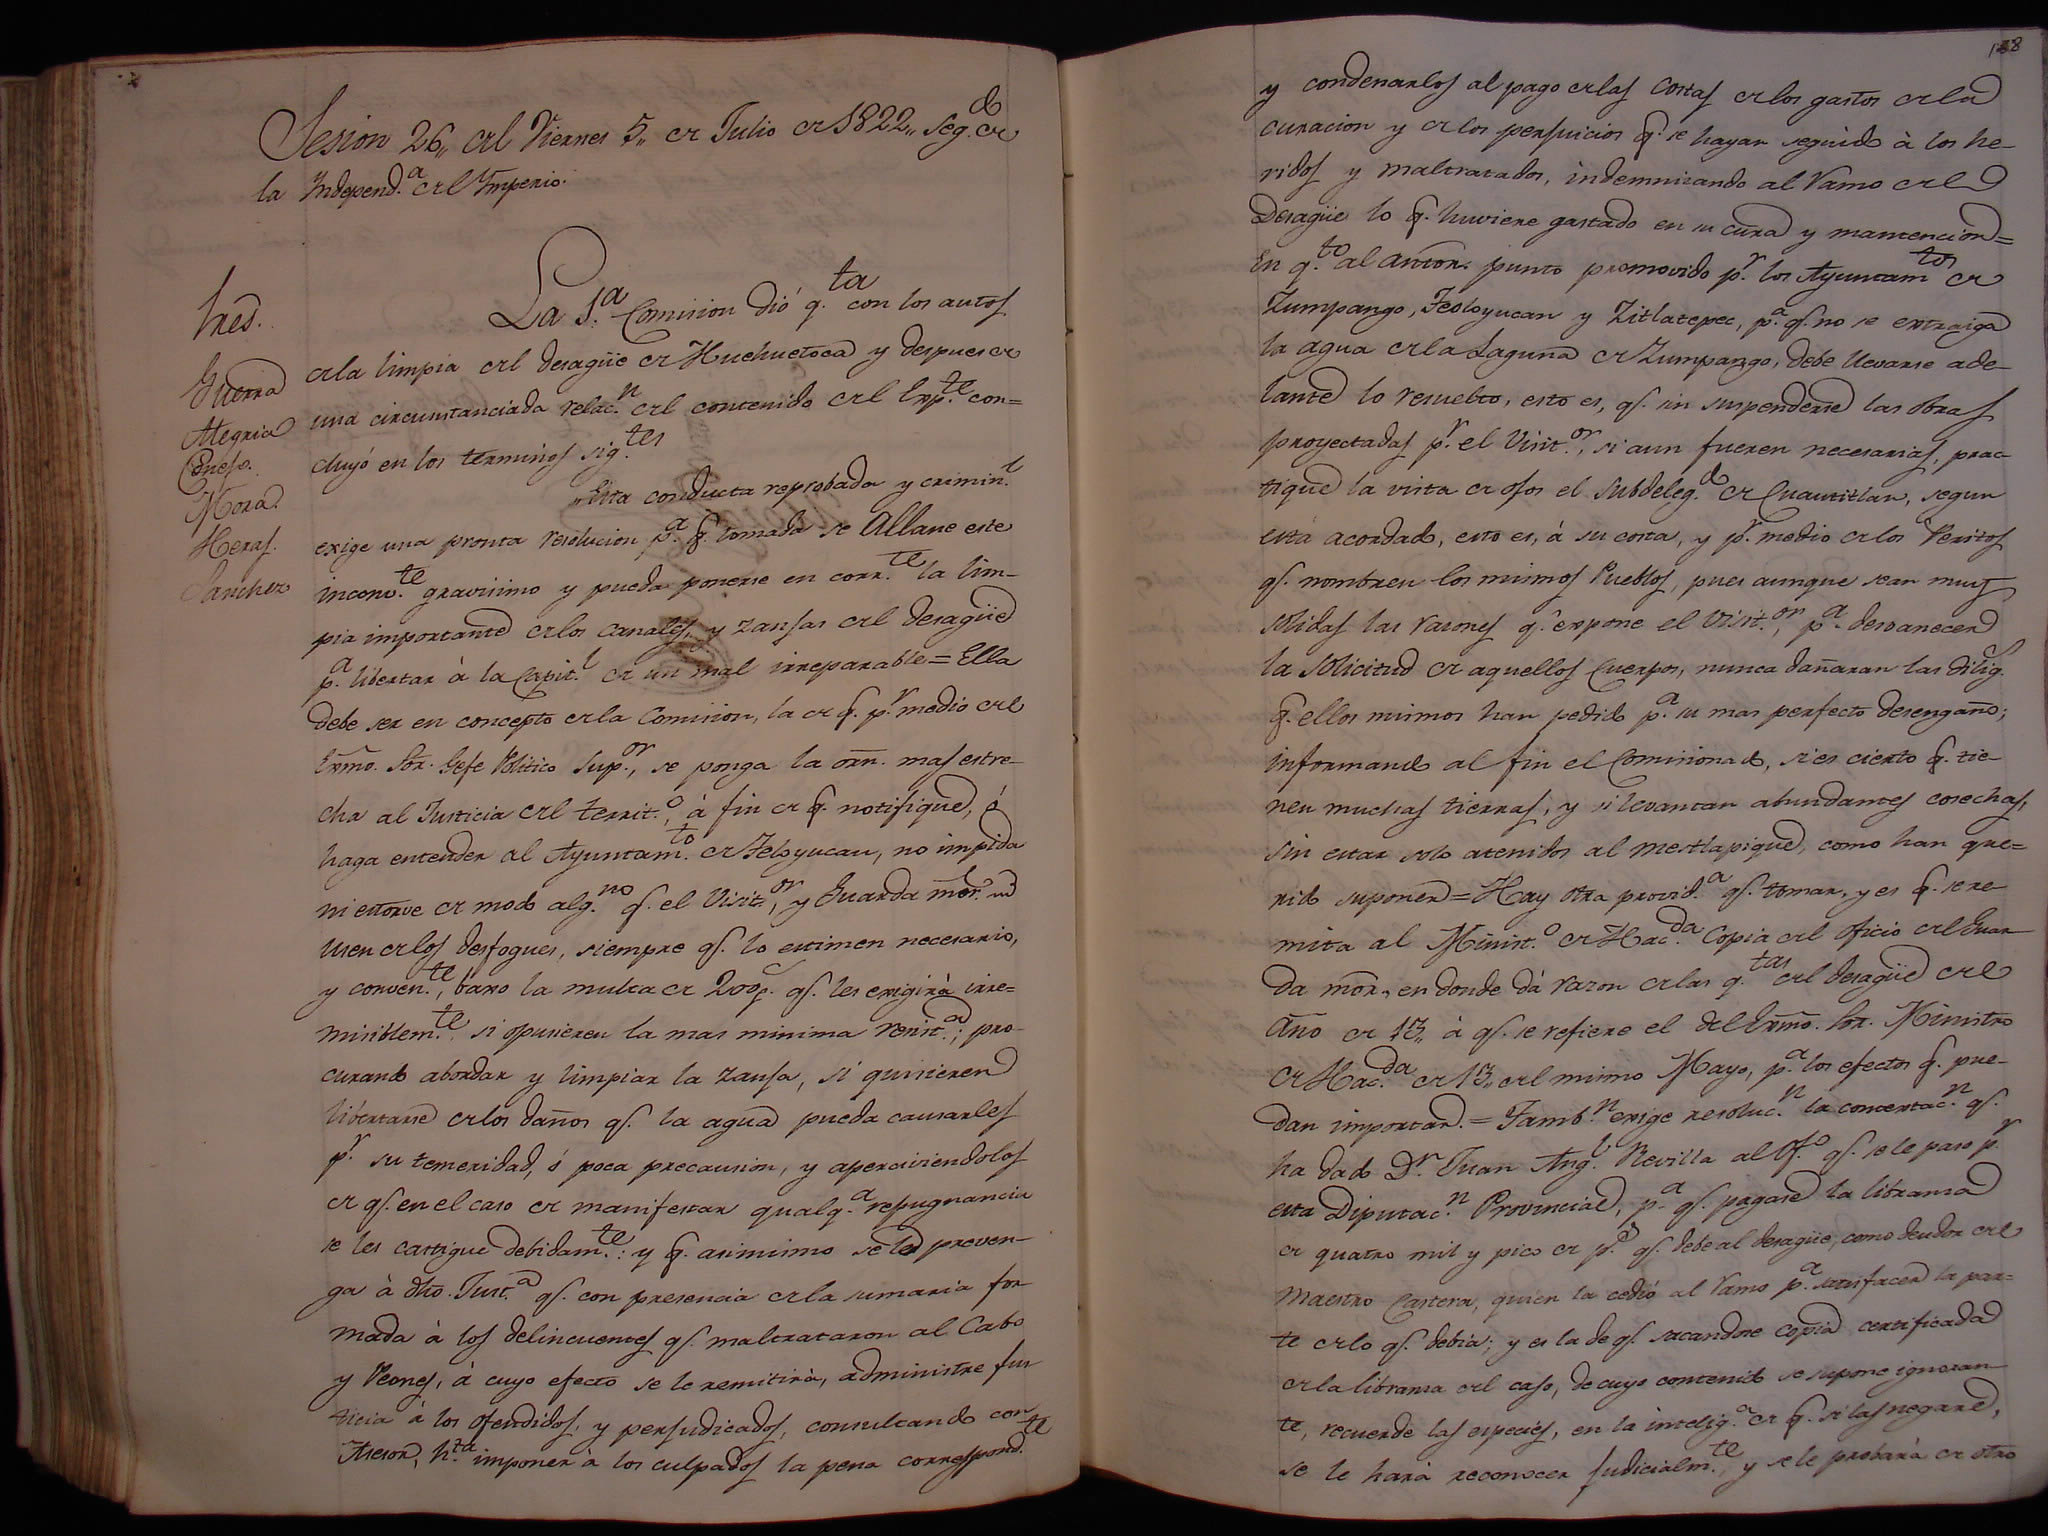 Sesion 26,, del Viernes 5,, de Julio de 1822,, seg.do de
la Independ.a del Ymperio.
Pred.
Guerra
Alegria
Conejo.
Mora.
Heras.
Sanchez
La 1.a Comision dió q.ta con los autos
de la limpia del desagüe de Huehuetoca y despues de
una circunstanciada relac.n del contenido del Exp.te con=
cluyó en los terminos sig.tes
"Esta conducta reprobada y crimin.l
exige una pronta resolucion p.a q. tomada se Allane este
inconv.te gravisimo y pueda ponerse en corr.te la lim-
pia importante de los canales, y zanjas del desagüe
p.a libertar à la Capit.l de un mal irreparable = Ella
debe ser en concepto de la Comision, la de q. p.r medio del
Exmo. Sor. Gefe Politico Sup.or, se ponga la orn. mas estre-
cha al Justicia del territ.o, à fin de q. notifique, ó
haga entender al Ayuntam.to de Teloyucan, no impida
ni estorve de modo alg.no q. el Visit.or, y Guarda mór. ud
usen de los desfogues, siempre q. lo estimen necesario,
y conven.te, baxo la multa de 200p.s q. les exigirà irre=
misiblem.te si opusieren la mas minima resist.a; pro-
curando abordar y limpiar la zanja, si quisieren
libertarse de los daños q. la agua pueda causarles
p.r su temeridad, ó poca precausion, y aperciviendolos
de q. en el caso de manifestar qualq.a repugnancia
se les castigue debidam.te: y q. asimismo se le preven-
ga à dho. Just.a q. con presencia de la sumaria for
mada à los delincuentes q. maltrataron al Cabo
y Peones, à cuyo efecto se le remitirà, administre jus
ticia à los ofendidos, y perjudicados, consultando con
Asesor, h.ta imponer à los culpados la pena correspond.te
138
y condenarlos al pago de las costas de los gastos de la
curacion y de los perjuicios q. se hayan seguido à los he-
ridos y maltratados, indemnizando al Ramo del
Desagüe lo q. huviere gastado en su cura y mantencion=
En q.to al anter.r punto promovido p.r los Ayuntam.tos de
Zumpango, Teoloyucan y Zitlatepec, p.a q. no se extraiga
la agua de la Laguna de Zumpango, debe llevarse ade-
lante lo resuelto, esto es, q. sin suspenderse las obras
proyectadas p.r el Visit.or, si aun fueren necesarias, prac-
tique la vista de ojos el Subdeleg.do de Cuautitlan, segun
está acordado, esto es, à su costa, y p.r medio de los Peritos
q. nombren los mismos Pueblos, pues aunque sean muy
solidas las razones q. expone el Visit.or, p.a desvanecer
la solicitud de aquellos Cuerpos, nunca dañaran las dilig.s
q. ellos mismos han pedido p.a su mas perfecto desengaño;
informando al fin el Comisionado, si es cierto q. tie-
nen muchas tierras, y si levantan abundantes cosechas,
sin estar solo atenidos al mextlapique, como han que=
rido suponer = Hay otra provid.a q. tomar, y es q. se re
mita al Minist.o de Hac.da Copia del oficio del Guar
da mór., en donde dá razon de las q.tas del desagüe del
año de 13,, à q. se refiere el del Exmo. Sor. Ministro
de Hac.da de 13,, del mismo Mayo, p.a los efectos q. pue-
dan importar. = Tamb.n exige resoluc.n la contextac.n q.
ha dado D.n Juan Ang.l Revilla al of.o q. se le paso p.r
esta Diputac.n Provincial, p.a q. pagase la libranza
de quatro mil y pico de p.s q. debe al desagüe, como deudor del
Maestro Castera, quien la cedió al Ramo p.a satisfacer la par=
te de lo q. debia; y es la de q. sacandose copia certificada
de la libranza del caso, de cuyo contenido se supone ignoran-
te, recuerde las especies, en la intelig.a de q. si las negare,
se le harà reconocer judicialm.te, y se le probarà de otro